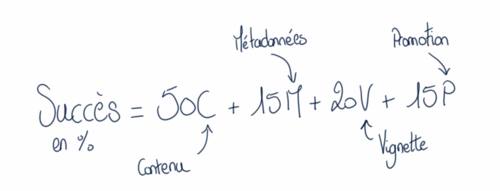 Métadonnées
Promotion
Succès = 50C + 15M + 20V + 15P
en %
Contenu
Vignette